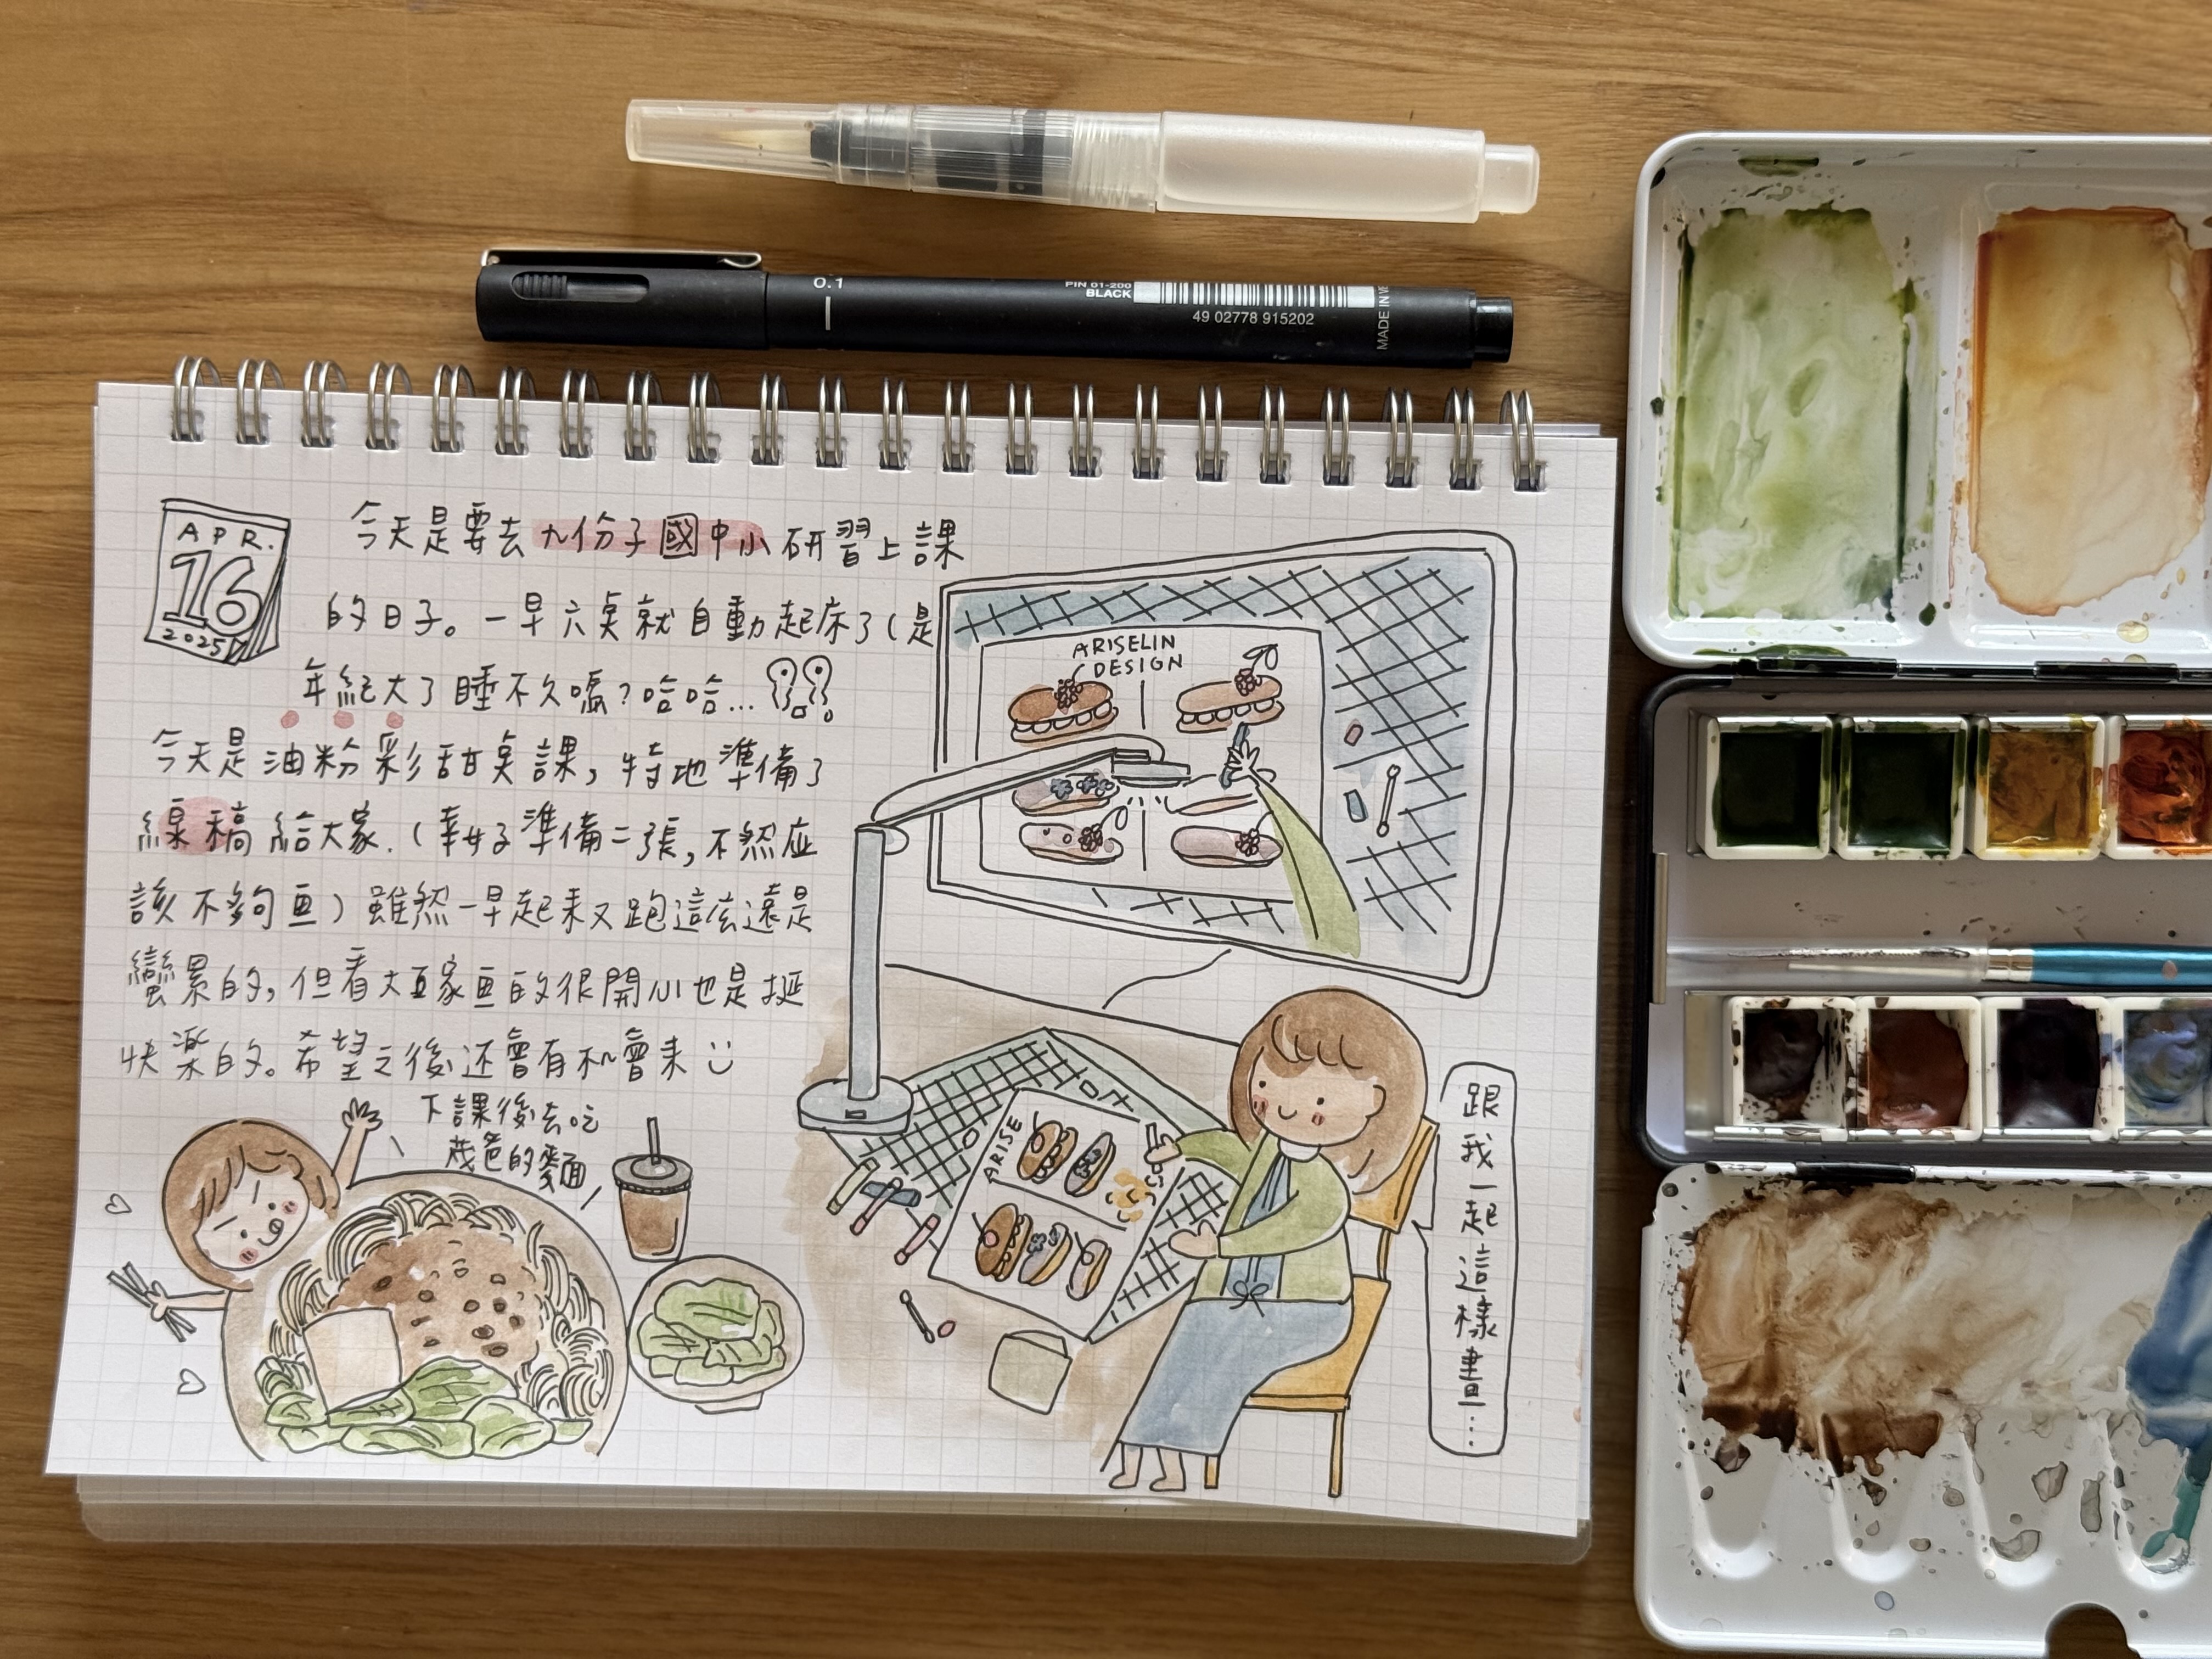 0.1
PIN 01-200
BLACK
49 02778 915202
MADE IN
APR.
16
2025
今天是要去九份子國中小研習上課
的日子。一早六奌就自動起床了(是
年紀大了睡不久嗎?哈哈...??
今天是油粉彩甜奌課,特地準備了
線稿給大家.(幸好準備二張,不然应
該不夠画)雖然一早起来又跑這広遠是
蠻累的,但看大家画的很開心也是挺
快楽的。希望之後还會有机會来
下課後去吃
茂爸的麥面
ARISELIN
DESIGN
ARISE
跟我一起這樣畫...